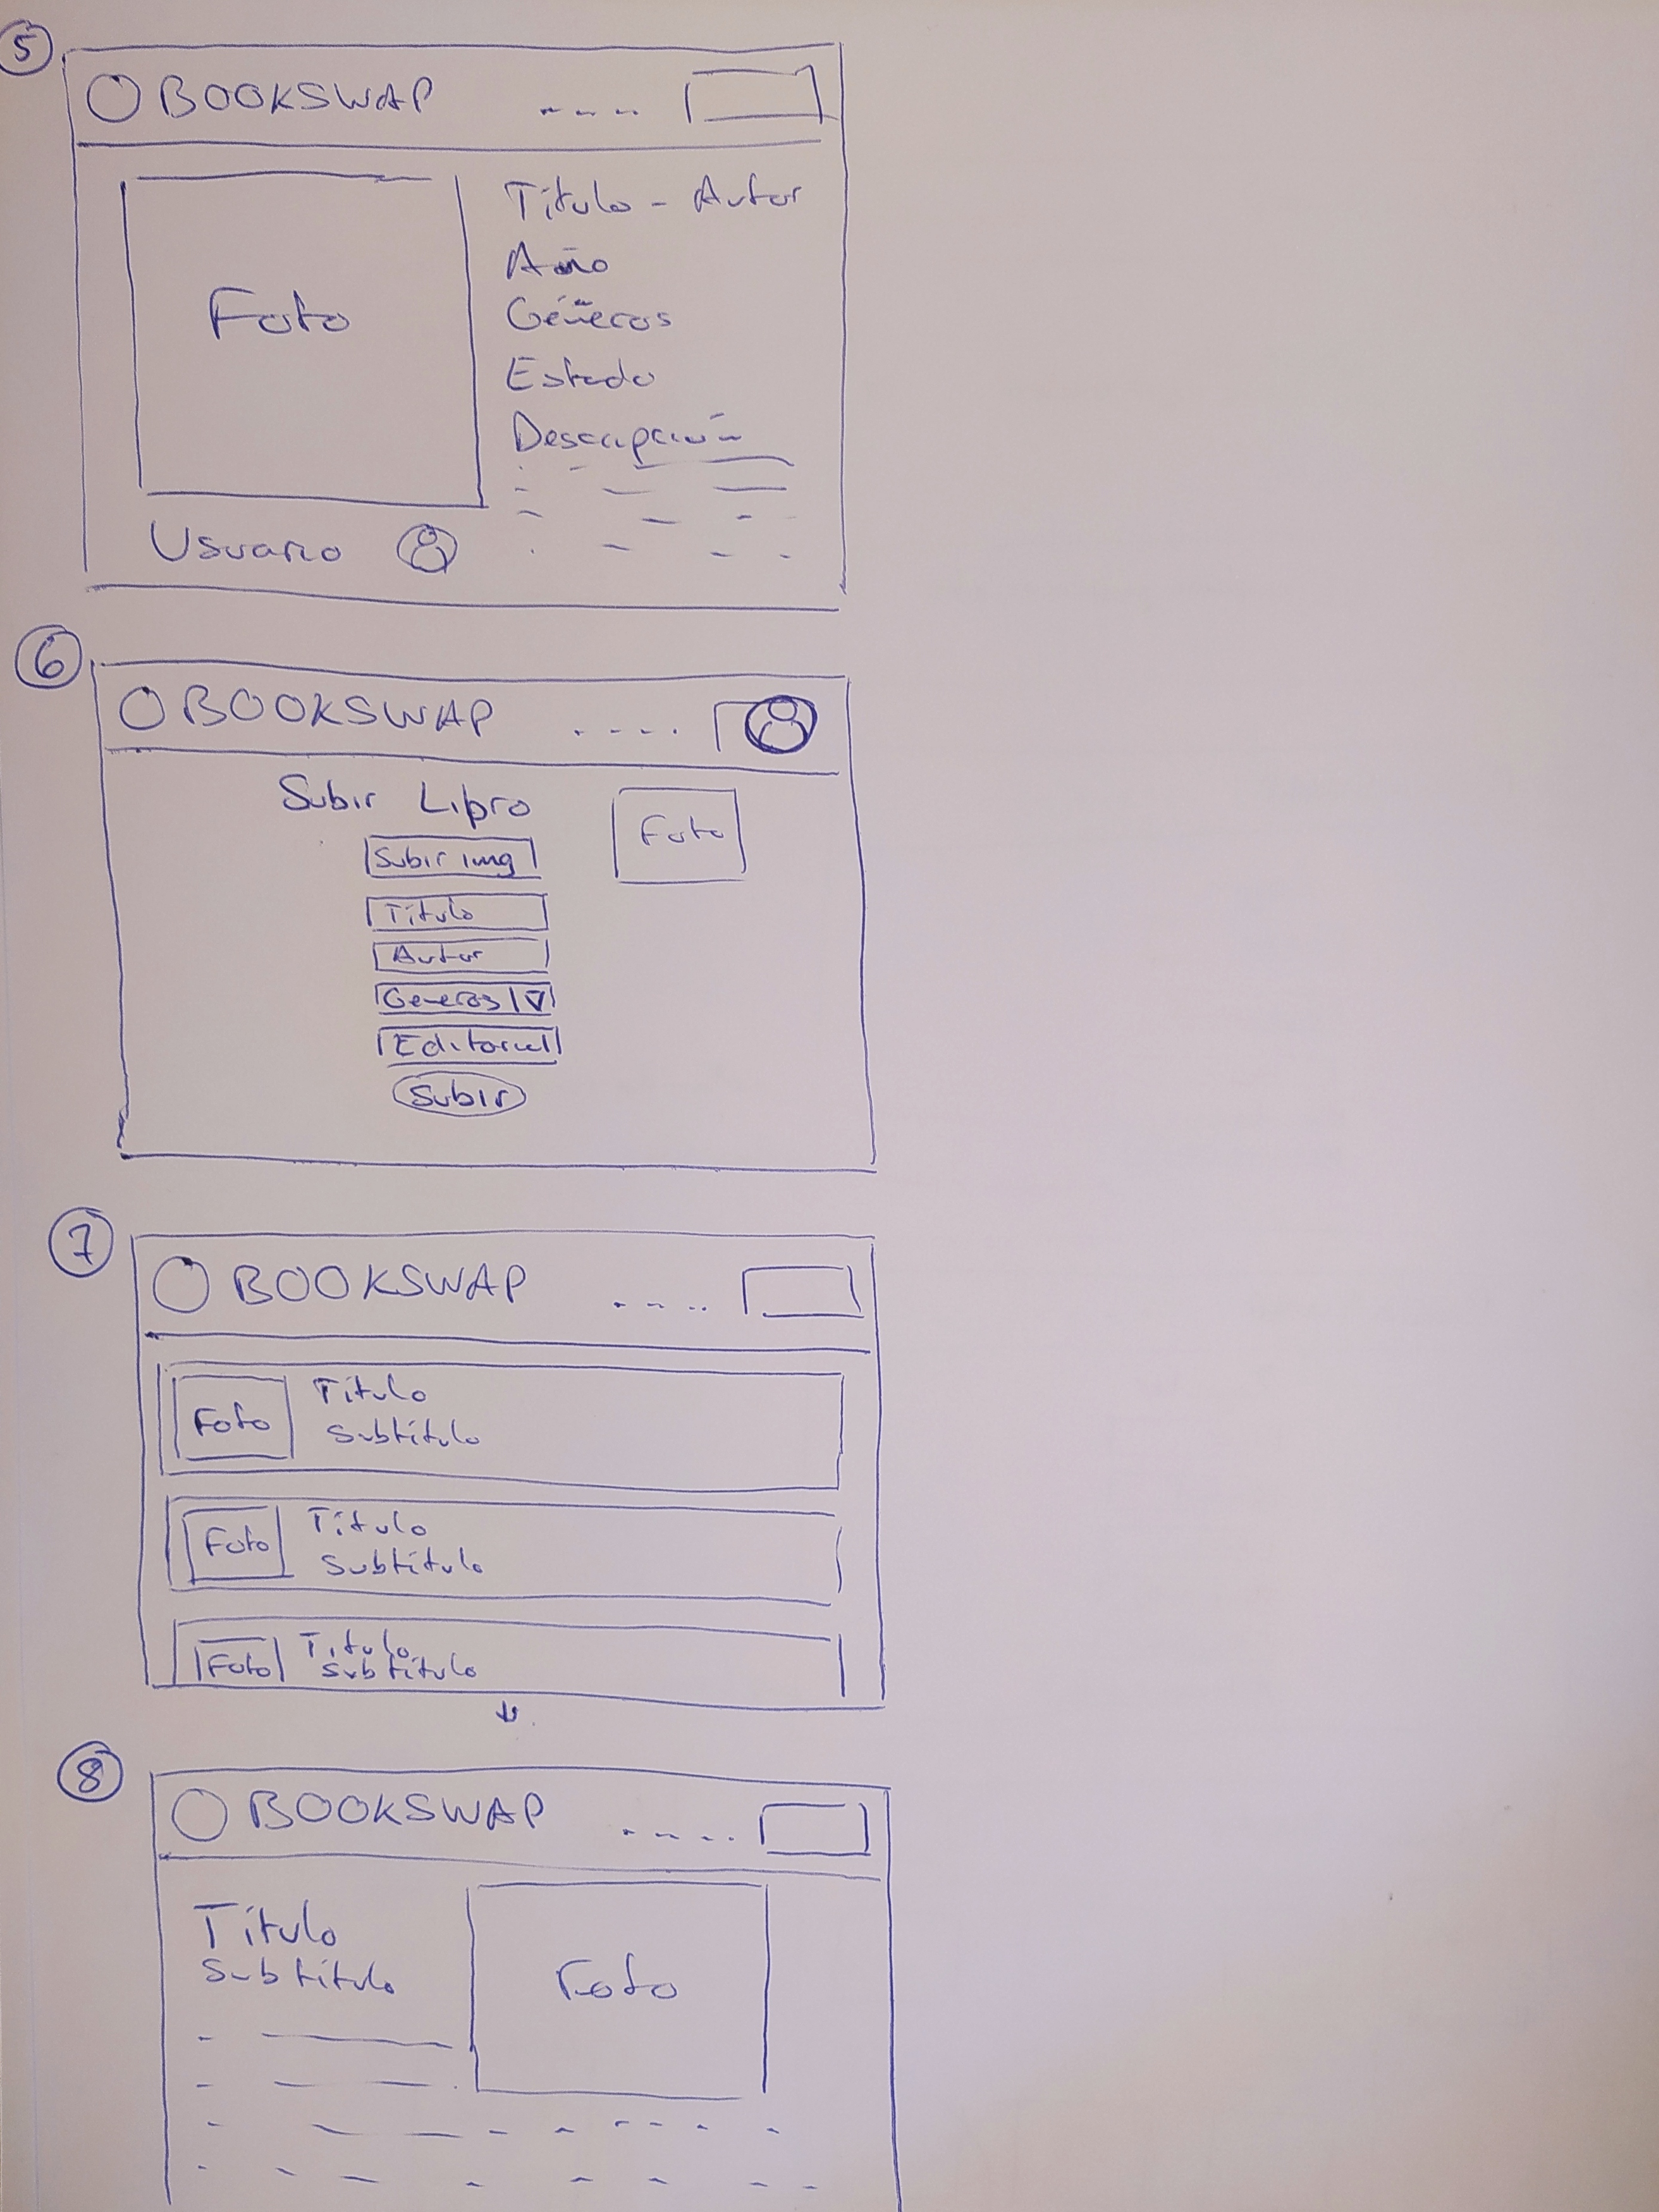 5
BOOKSWAP
Título - Autor
Año
Foto
Géneros
Estado
Descripción
Usuario
6
BOOKSWAP
Subir Libro
Foto
Subir img
Título
Autor
Generos
Editorial
Subir
7
BOOKSWAP
Foto
Título
Subtítulo
Foto
Título
Subtítulo
Foto
Título
Subtítulo
8
BOOKSWAP
Título
Subtítulo
Foto